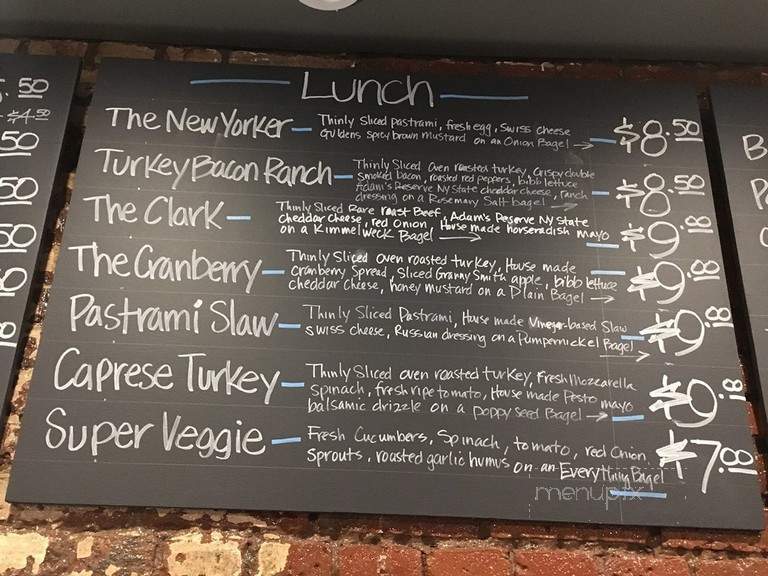 Lunch
The New Yorker - Thinly Sliced pastrami, fresh egg, Swiss cheese
Guldens spicy brown mustard on an Onion Bagel → $8.50
Turkey Bacon Ranch - Thinly Sliced Oven roasted turkey, Crispy double
smoked bacon, roasted red peppers, bibb lettuce
Adam's Reserve NY State cheddar cheese, ranch
dressing on a Rosemary Salt bagel → $8.50
The Clark - Thinly Sliced Rare roast Beef, Adam's Reserve NY State
cheddar cheese, red Onion, House made horseradish mayo
on a Kimmelweck Bagel → $9.00
The Cranberry - Thinly Sliced Oven roasted turkey, House made
Cranberry Spread, Sliced Granny Smith apple, bibb lettuce
cheddar cheese, honey mustard on a Plain Bagel → $9.00
Pastrami Slaw - Thinly Sliced Pastrami, House made Vinegar-based Slaw
Swiss cheese, Russian dressing on a Pumpernickel Bagel → $9.00
Caprese Turkey - Thinly Sliced oven roasted turkey, Fresh Mozzarella
Spinach, fresh ripe tomato, House made Pesto mayo
balsamic drizzle on a poppy seed Bagel → $9.00
Super Veggie - Fresh Cucumbers, Spinach, tomato, red Onion
Sprouts, roasted garlic humus on an Everything Bagel $7.00
.50
$4.50
50
50
50
menupix